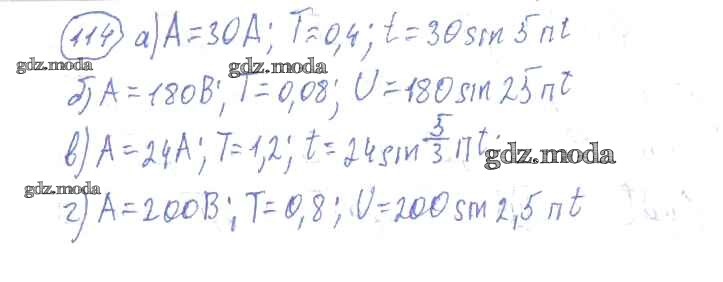 114 а) A=30A; T=0,4; t=30sin 5πt
gdz.moda gdz.moda
б) A=180B; T=0,08; U=180sin 25πt
в) A=24A; T=1,2; t=24sin 5/3 πt.
gdz.moda
gdz.moda
г) A=200B; T=0,8; U=200sin 2,5πt